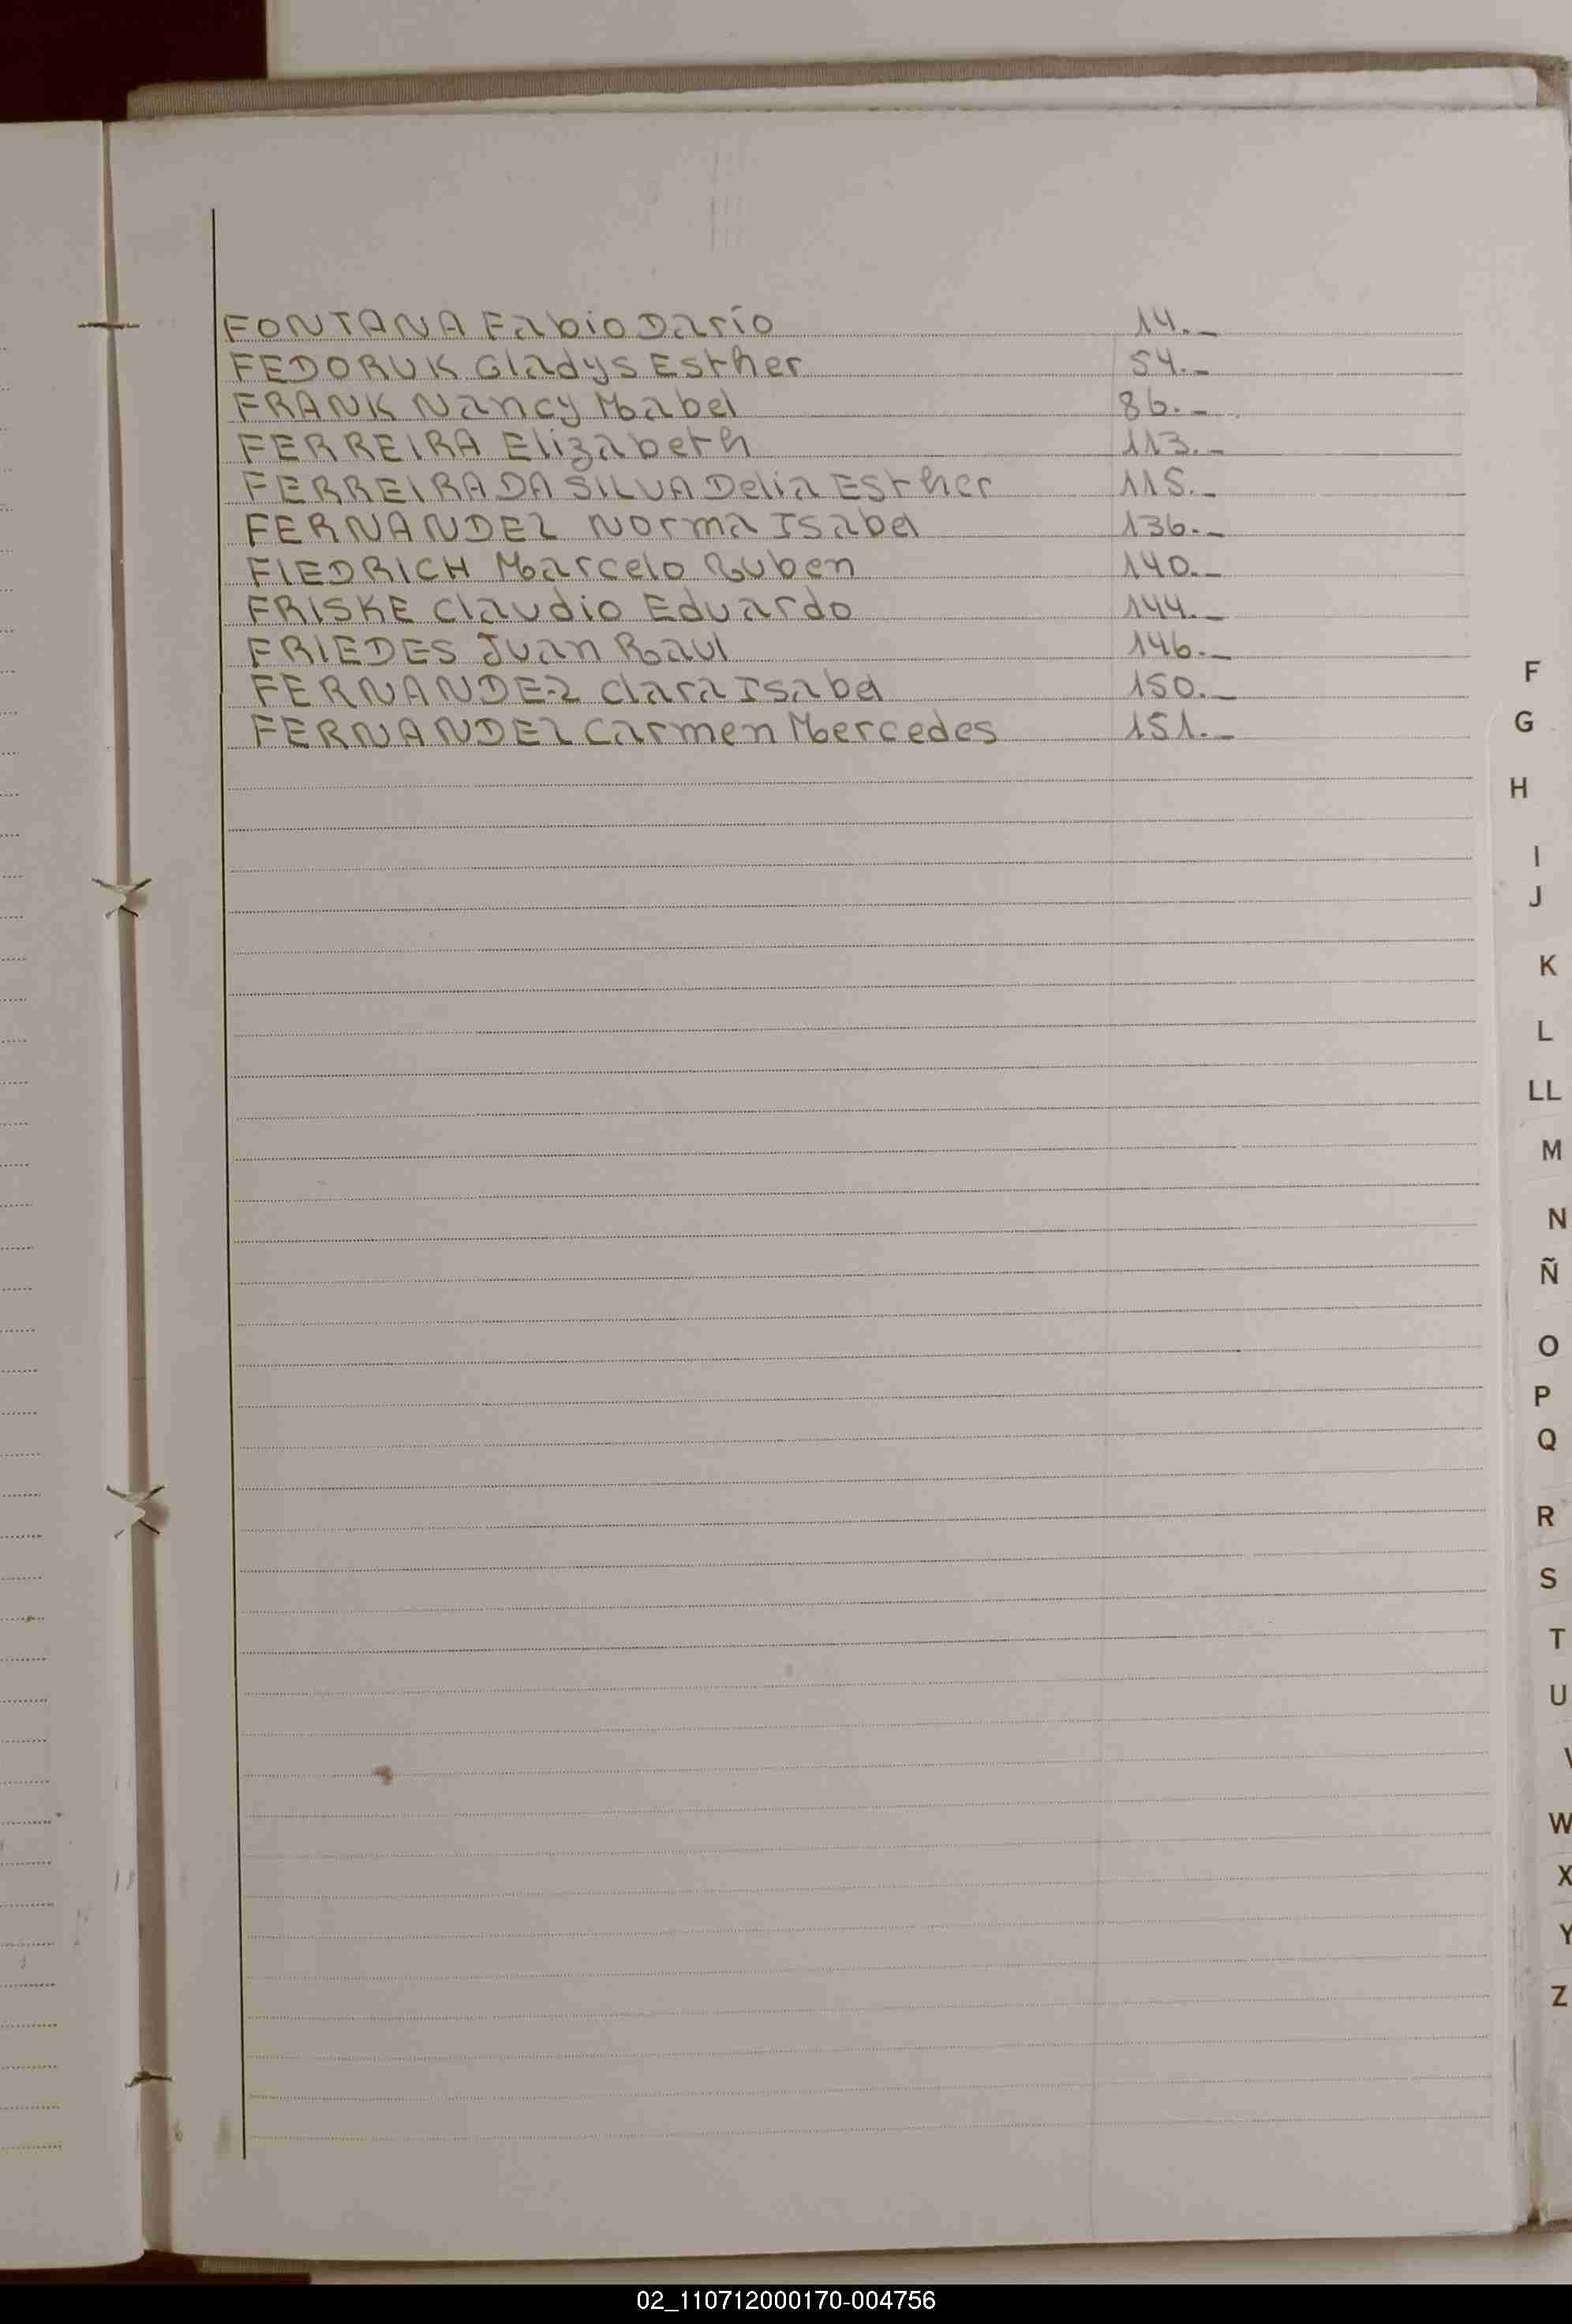 FONTANA Fabio Darío 14.-
FEDORUK Gladys Esther 54.-
FRANK Nancy Mabel 86.-
FERREIRA Elizabeth 113.-
FERREIRA DA SILVA Delia Esther 115.-
FERNANDEZ Norma Isabel 136.-
FIEDRICH Marcelo Ruben 140.-
FRISKE Claudio Eduardo 144.-
FRIEDES Juan Raul 146.-
FERNANDEZ Clara Isabel 150.-
FERNANDEZ Carmen Mercedes 151.-
F
G
H
I
J
K
L
LL
M
N
Ñ
O
P
Q
R
S
T
U
W
X
Y
Z
02_110712000170-004756